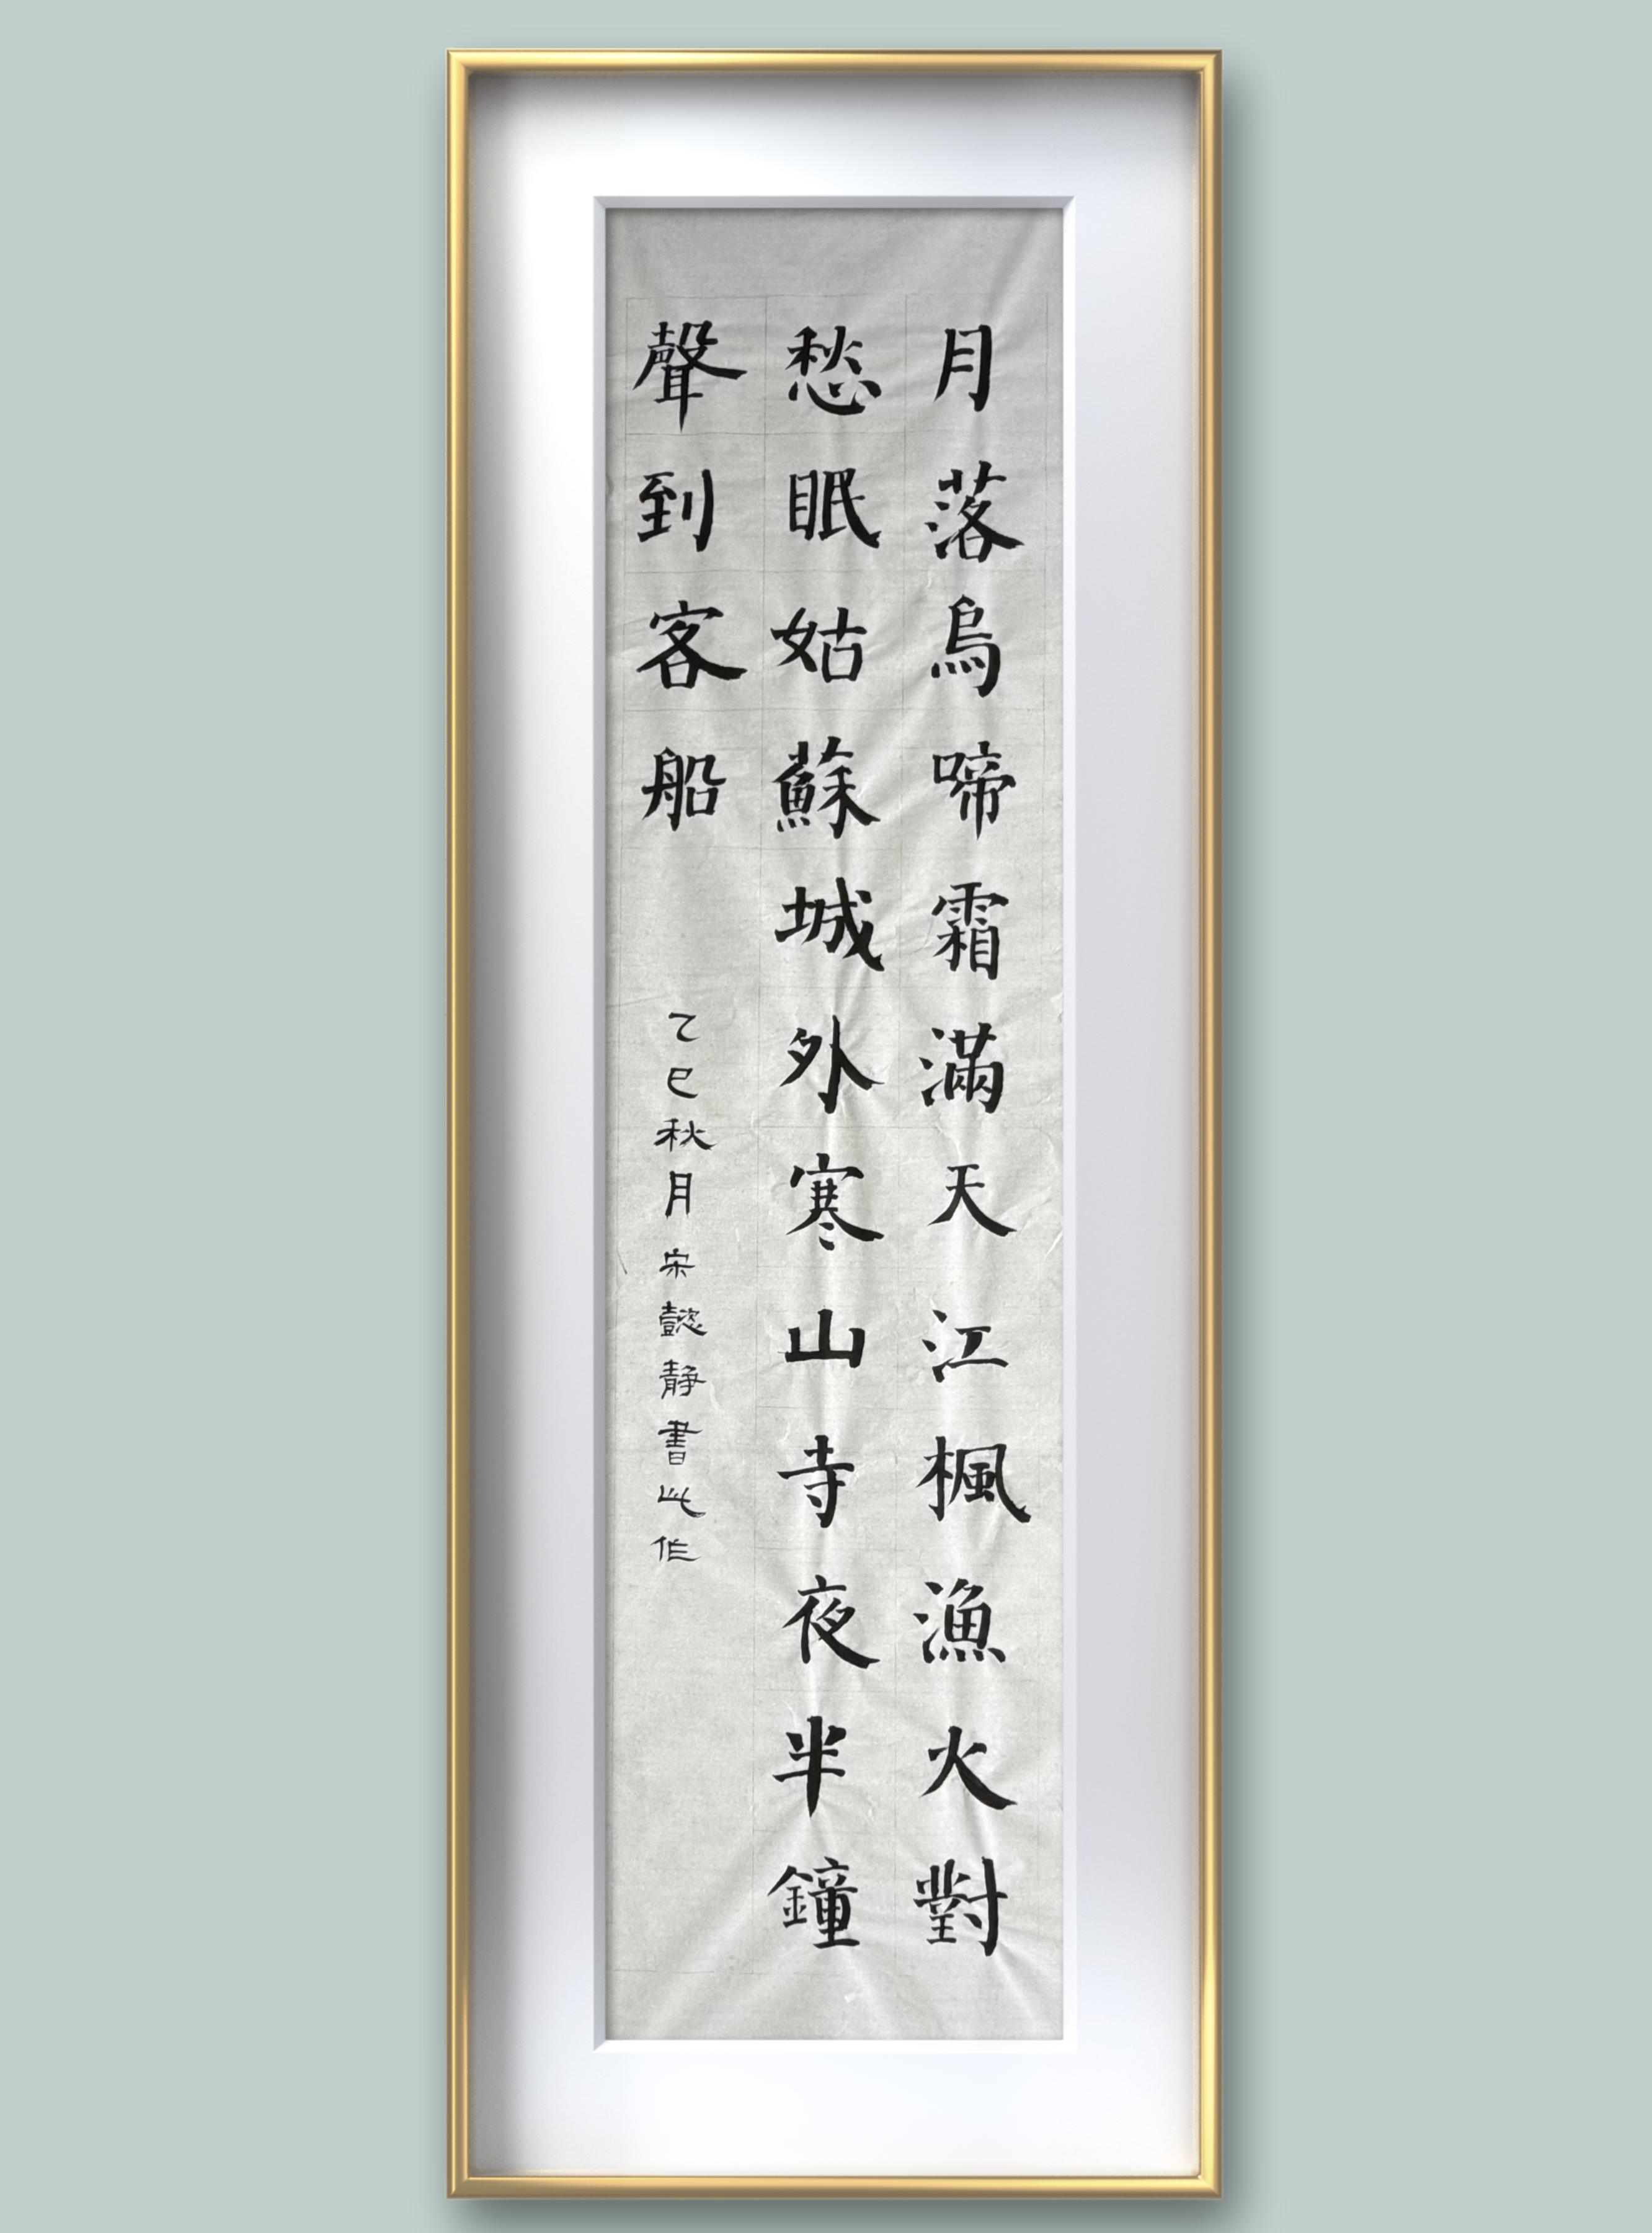 月落烏啼霜滿天江楓漁火對
愁眠姑蘇城外寒山寺夜半鐘
聲到客船
乙巳秋月宋懿靜書此作